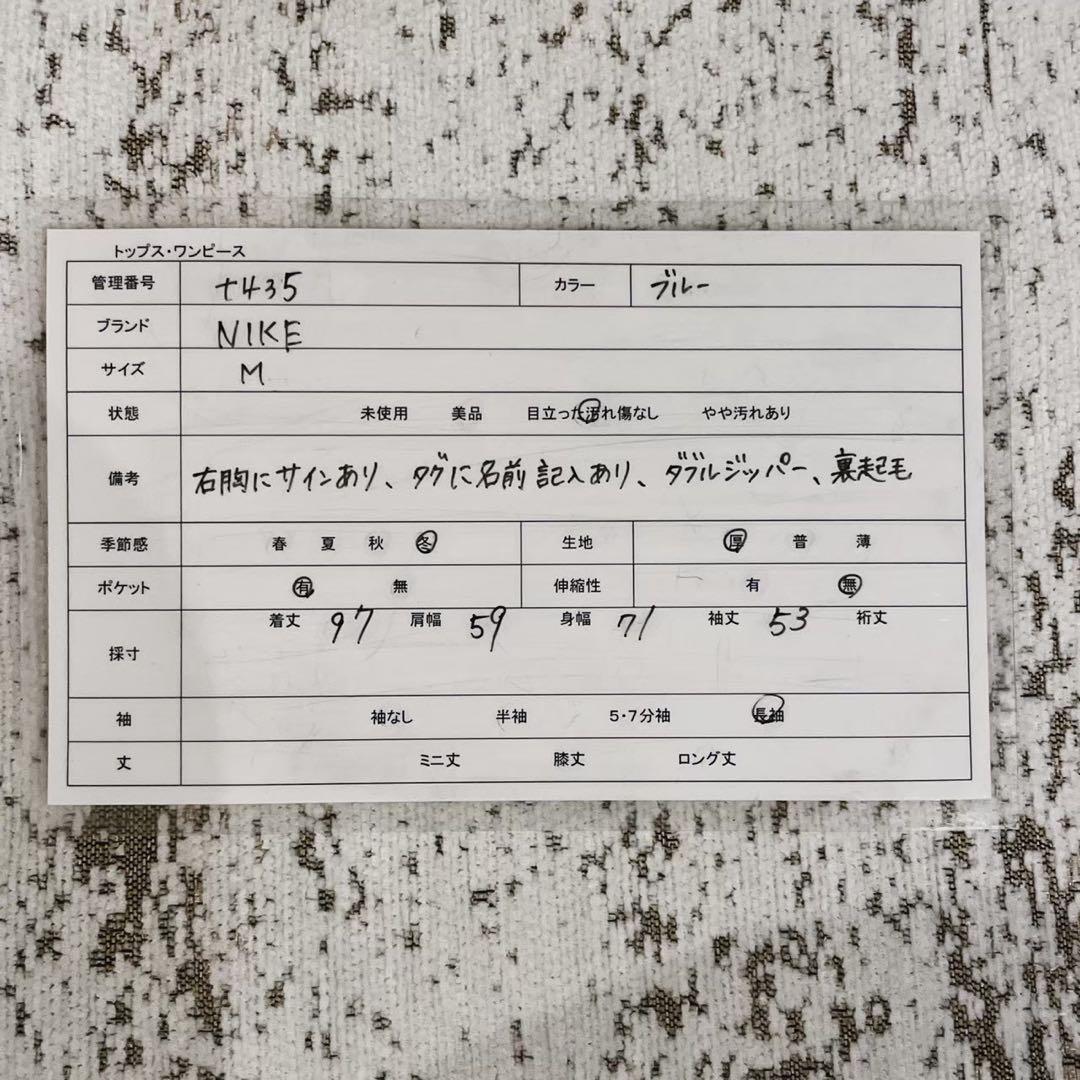 トップス・ワンピース
管理番号 t435 カラー ブルー
ブランド NIKE
サイズ M
状態 未使用 美品 目立った汚れ傷なし やや汚れあり
備考 右胸にサインあり、タグに名前記入あり、ダブルジッパー、裏起毛
季節感 春 夏 秋 冬 生地 厚 普 薄
ポケット 有 無 伸縮性 有 無
採寸 着丈 97 肩幅 59 身幅 71 袖丈 53 裄丈
袖 袖なし 半袖 5・7分袖 長袖
丈 ミニ丈 膝丈 ロング丈